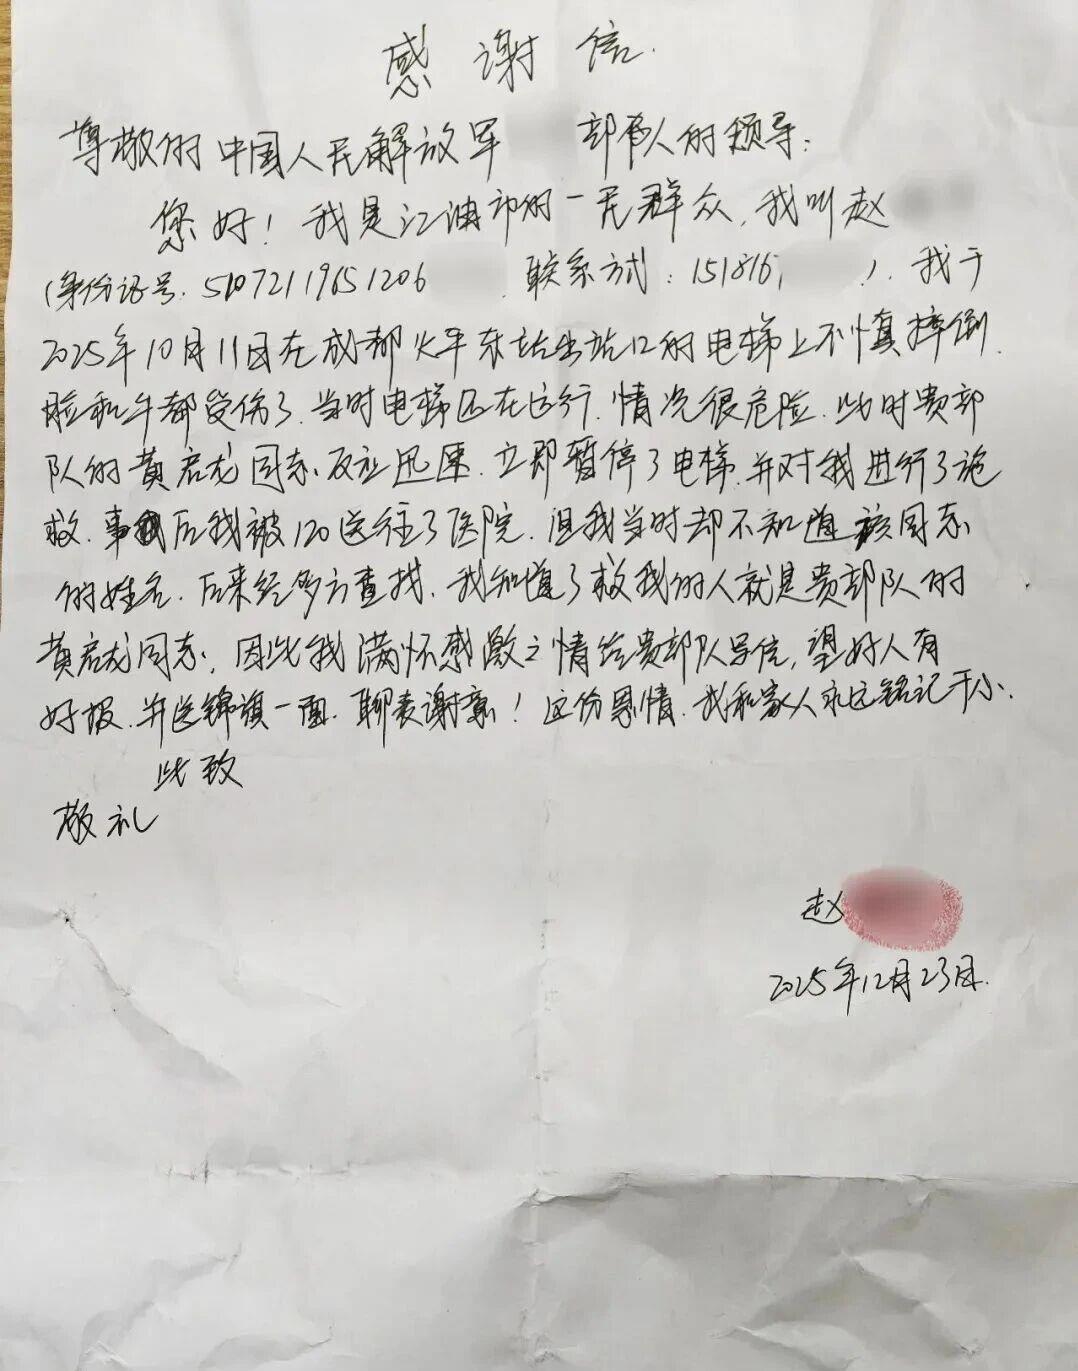 感谢信.
尊敬的中国人民解放军 部队的领导:
您好!我是江油市的一民群众,我叫赵
(身份证号:51072119651206 联系方式:151816 ),我于
2025年10月11日在成都火车东站出站口的电梯上不慎摔倒.
脸和牛都受伤了.当时电梯还在运行.情况很危险.此时贵部
队的黄启龙同志反应迅速.立即暂停了电梯.并对我进行了施
救.事后我被120送往了医院.但我当时却不知道该同志
的姓名.后来经多方查找.我知道了救我的人就是贵部队的
黄启龙同志.因此我满怀感激之情给贵部队写信,望好人有
好报.并送锦旗一面.聊表谢意!这份恩情.我和家人永远铭记于心.
此致
敬礼
赵
2025年12月23日.